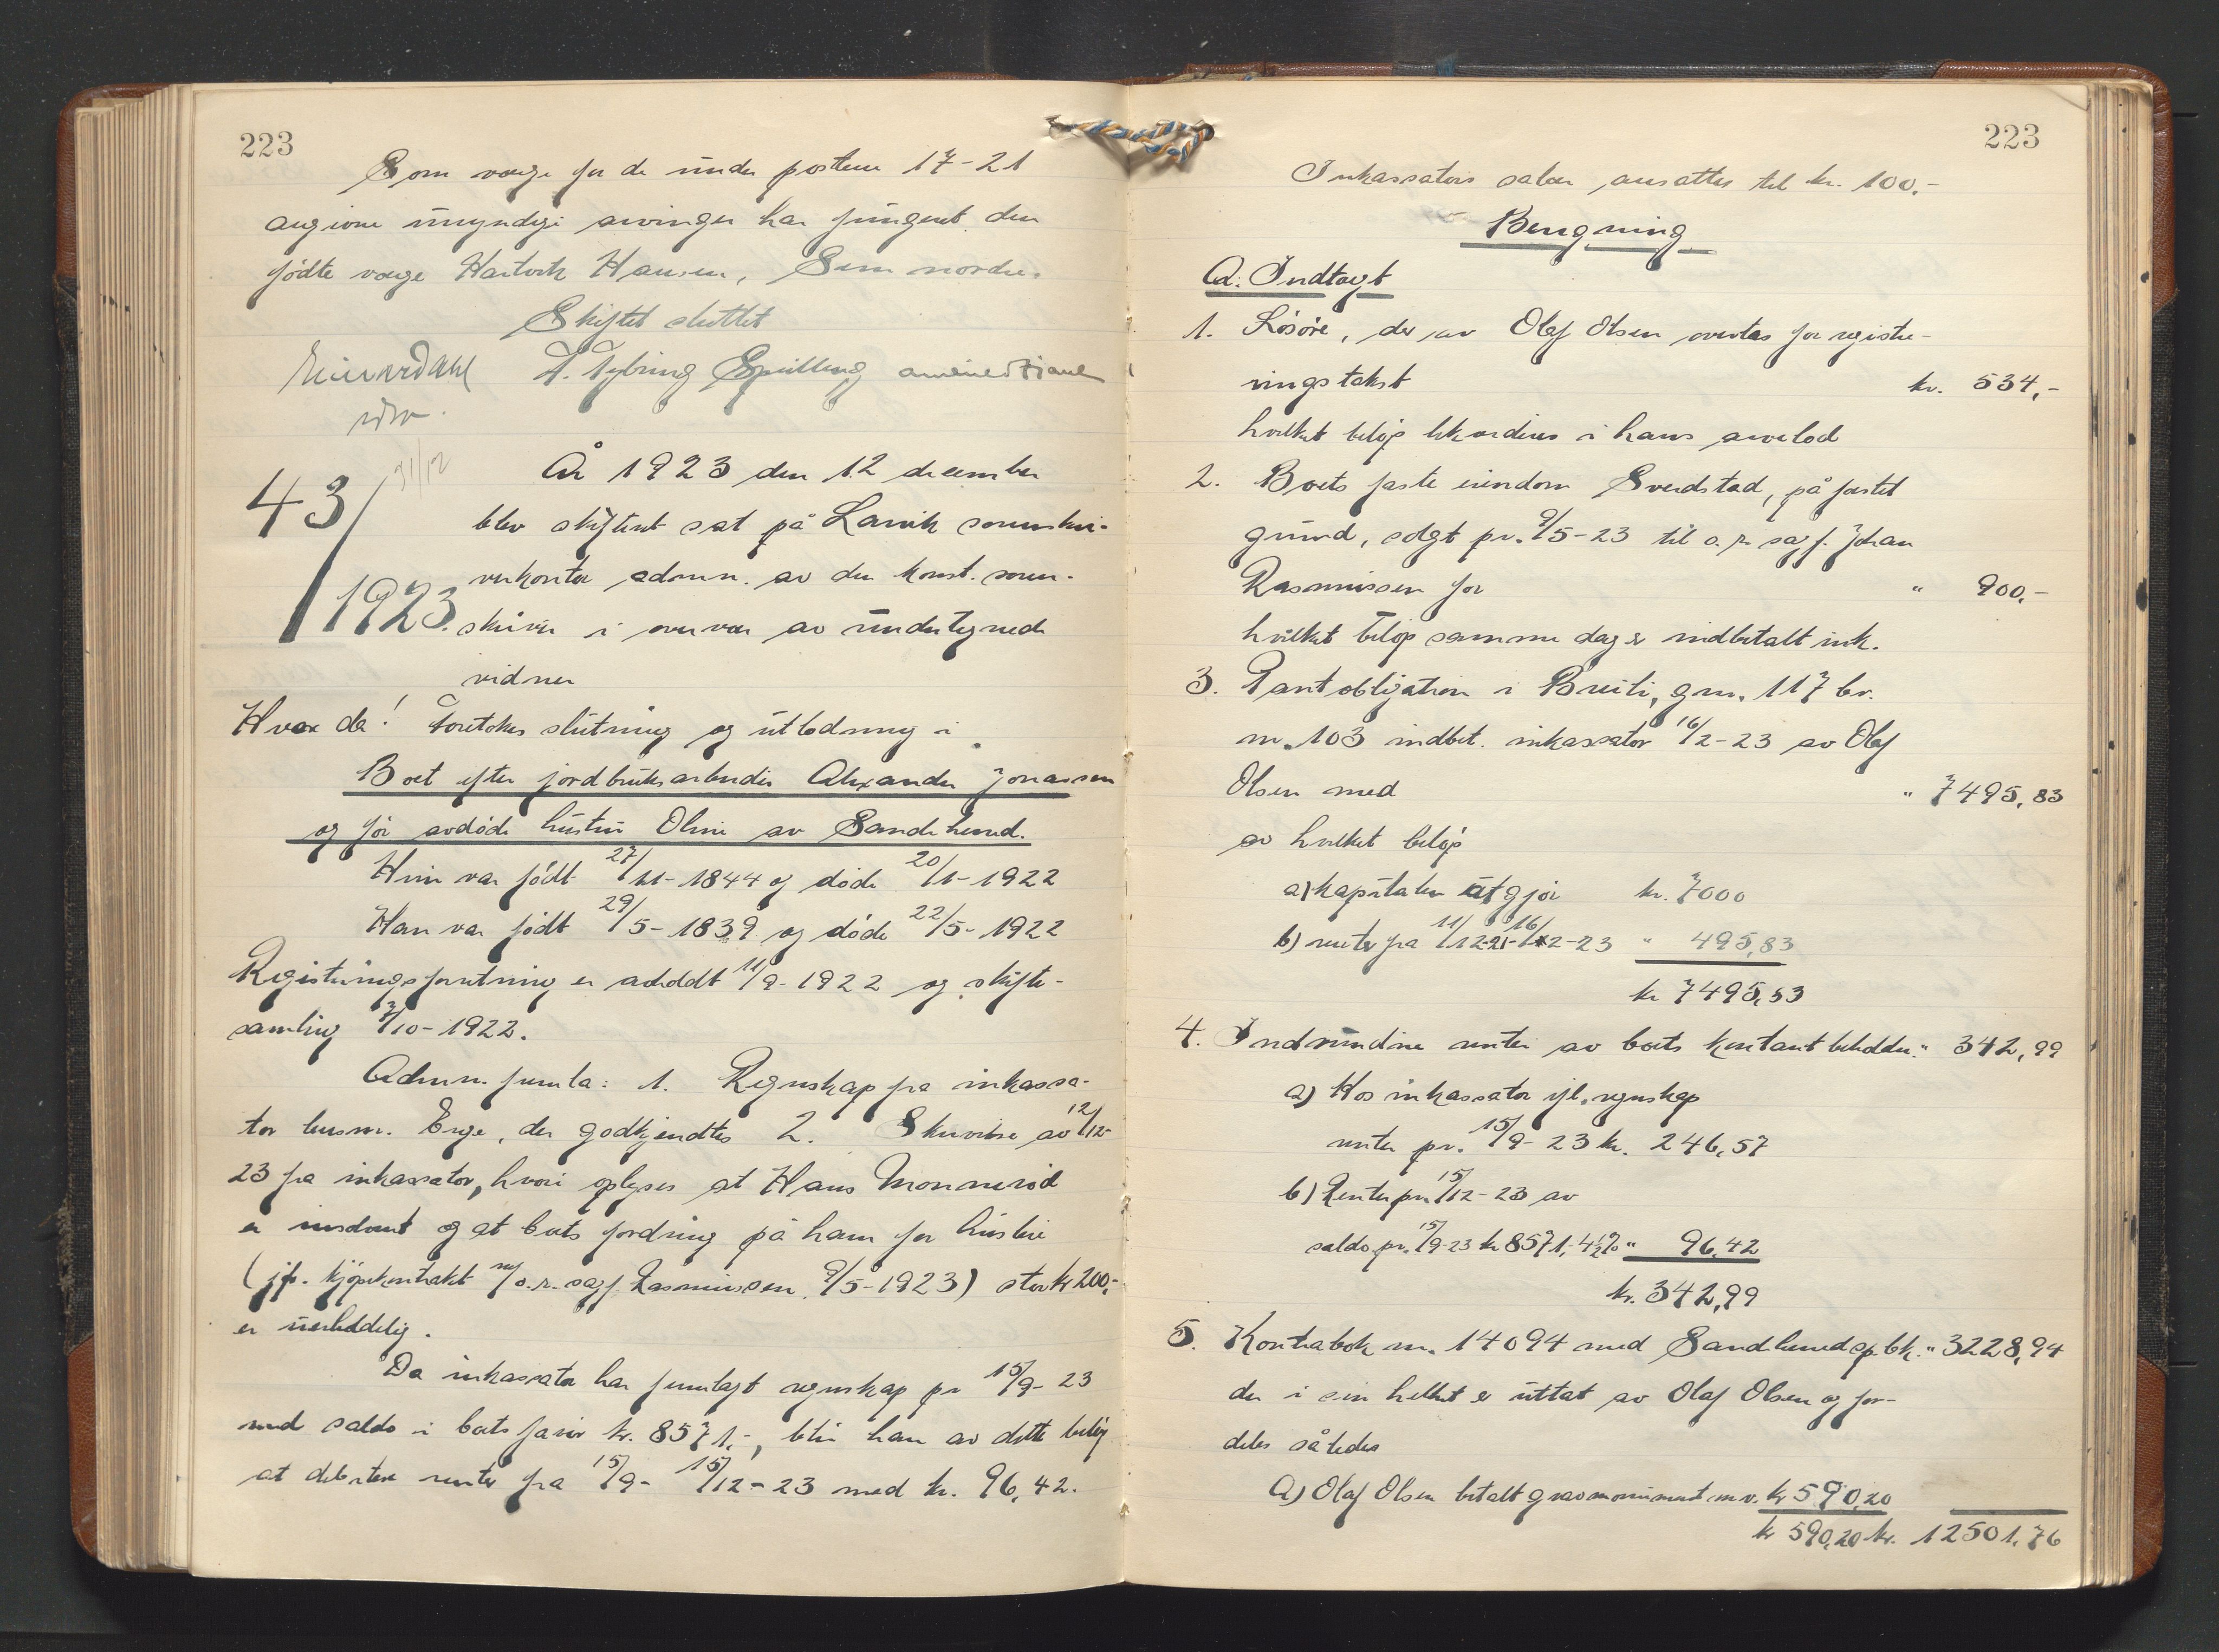 223
Som verge for de under postene 17-21
angivne umyndige arvinger har fungert den
fødte verge Hartvik Hansen, Sem nordre.
Skiftet sluttet
Einar Dahl F. Nybring Spilling
43/1923. 31/12
År 1923 den 12 december
blev skifteret sat på Larvik sorenskri-
verkontor admin. av den konst. soren-
skriver i overvær av undertegnede
vidner
Hvor da! Foretokes slutning og utlodning i
Boet efter jordbruksarbeider Alexander Jonassen
og før avdøde hustru Oline av Sandeherred.
Hun var født 27/11-1844 og døde 20/1-1922
Han var født 29/5-1839 og døde 22/5-1922
Registreringsforretning er avholdt 11/9-1922 og skifte-
samling 7/10-1922.
Admin. fremla: 1. Regnskap fra inkassa-
tor lensm. Enge, der godkjendtes 2. Skrivelse av 12/12-
23 fra inkassator, hvori oplyses at Hans Monnerød
er insolvent og at boets fordring på ham for husleie
(jfr. kjøpekontrakt m/ o.r. sagf. Rasmussen 9/5-1923) stor kr 200,-
er uerholdelig.
Da inkassator har fremlagt regnskap pr 15/9-23
med saldo i boets favør kr. 8571,-, blir han av dette beløp
at debitere renter fra 15/9- 15/12-23 med kr. 96,42.
223
Inkassators salær ansattes til kr. 100.-
Beregning
A: Indtægt
1. Løsøre, der av Olaf Olsen overtas for registre-
ringstakst kr. 534,-
hvilket beløp likvideres i hans arvelod
2. Boets faste eiendom Sverdstad, på festet
grund, solgt pr. 9/5-23 til o.r. sagf. Johan
Rasmussen for " 900,-
hvilket beløp samme dag er indbetalt ink.
3. Pantobligation i Breili, gnr. 117 br.
nr. 103 indbet. inkassator 16/2-23 av Olaf
Olsen med " 7495,83
av hvilket beløp
a) kapitalen utgjør kr. 7000
b) renter fra 11/12-21-16/2-23 " 495,83
kr 7495,83
4. Indvundne renter av boets kontantbeholdn. " 342,99
a) Hos inkassator ifl. regnskap
renter pr. 15/9-23 kr. 246,57
b) Renter pr. 15/12-23 av
saldo pr. 15/9-23 kr 8571,- 4½% " 96,42
kr. 342,99
5. Kontrabok nr. 14094 med Sandeherred sp.bk. " 3228,94
der i sin helhet er uttat av Olaf Olsen og for-
deles således
A) Olaf Olsen betalt gravmonument m.v. kr 590,20
kr 590,20 kr. 12501,76